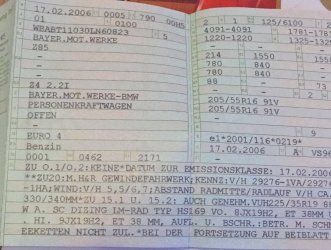 17.02.2006 0005 790 00H5
01 0100
WBABT11030LN60823 5
BAYER.MOT.WERKE
Z85
–
–
Z4 2.2I
BAYER.MOT.WERKE-BMW
PERSONENKRAFTWAGEN
OFFEN
–
EURO 4
Benzin
0001 0462 2171
2 1 125/6100
4091-4091 1781-1781
1220-1320 1225-132
–
214 1550
780 840
780 840
88 73
205/55R16 91V
205/55R16 91V
–
e1*2001/116*0219*
17.02.2006 A VS96
ZU 0.1/0.2:KEINE*DATUM ZUR EMISSIONSKLASSE: 17.02.2006
**ZU20:M.H&R GEWINDEFAHRWERK;KENNZ:V/H 29276-1VA/29276
-1HA;WIND:V/H 5,5/6,7;ABSTAND RADMITTE/RADLAUF V/H CA
330/340MM*ZU 15.1 U. 15.2: AUCH GENEHM.VUH225/35R19 8
W A. SC DIZING LM-RAD TYP HS169 VO. 8JX19H2, ET 38 MM
. HI. 9JX19H2, ET 38 MM, AUFL. U. BSCHR. BETR. M. SCH
EEKETTEN NICHT ZUL.*BEI DER FORTSETZUNG AUF BEIBLATT